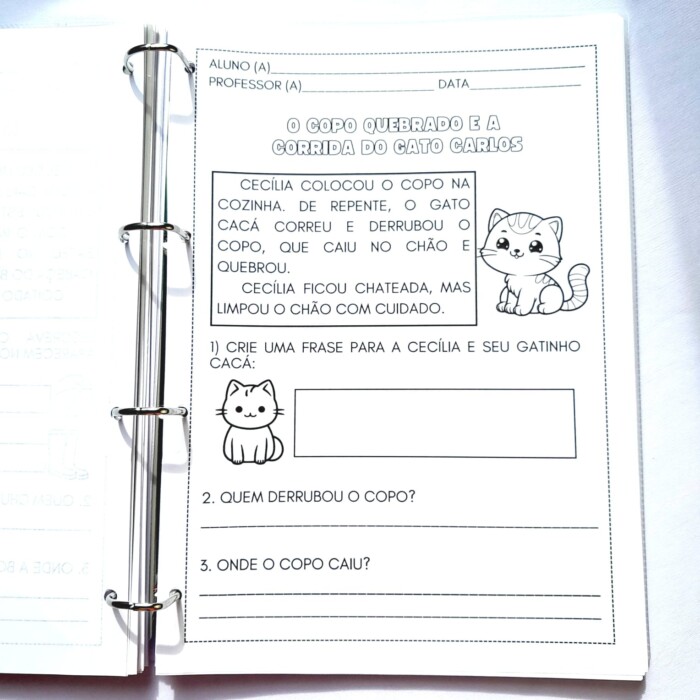 ALUNO (A)
PROFESSOR (A) DATA
O COPO QUEBRADO E A
CORRIDA DO GATO CARLOS
CECÍLIA COLOCOU O COPO NA
COZINHA. DE REPENTE, O GATO
CACÁ CORREU E DERRUBOU O
COPO, QUE CAIU NO CHÃO E
QUEBROU.
CECÍLIA FICOU CHATEADA, MAS
LIMPOU O CHÃO COM CUIDADO.
1) CRIE UMA FRASE PARA A CECÍLIA E SEU GATINHO
CACÁ:
2. QUEM DERRUBOU O COPO?
3. ONDE O COPO CAIU?